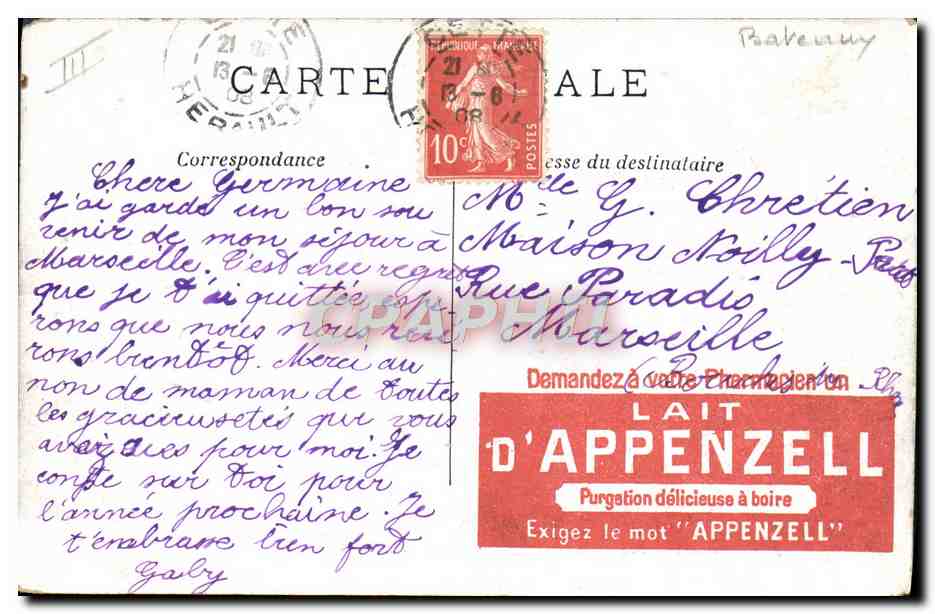 III
Bateaux
CARTE POSTALE
RÉPUBLIQUE FRANÇAISE
10c
POSTES
21
13 - 6
08
HERAULT
21
13 - 6
08
Correspondance
Adresse du destinataire
Chere Germaine
J'ai garde un bon sou
venir de mon séjour à
Marseille. C'est avec regret
que je t'ai quittée espe-
rons que nous nous rever
rons bientôt. Merci au
non de maman de toutes
les gracieusetés que vous
avez eues pour moi. Je
compte sur toi pour
l'année prochaine. Je
t'embrasse bien fort
Gaby
Mlle G. Chrétien
Maison Noilly-Prat
Rue Paradis
Marseille
(Bouches du Rhône
Demandez à votre Pharmacien un
LAIT
D'APPENZELL
Purgation délicieuse à boire
Exigez le mot "APPENZELL"
CPAPHIL